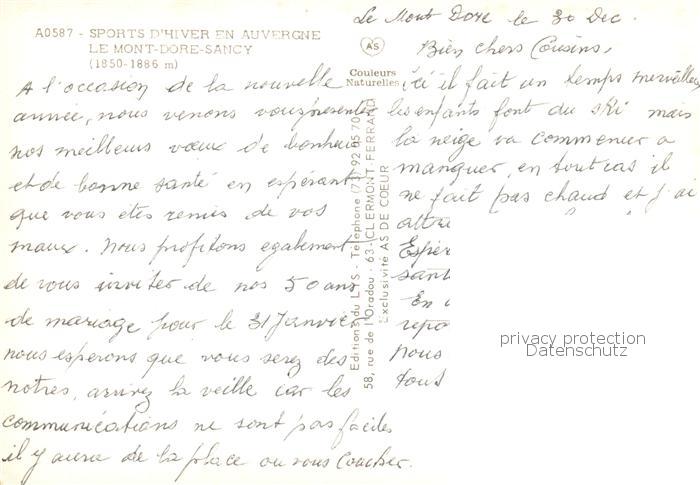 A0587 - SPORTS D'HIVER EN AUVERGNE
LE MONT-DORE-SANCY
(1850-1886 m)
AS
Couleurs
Naturelles
Editions du LYS - Téléphone (73) 92 05 70
58, rue de l'Oradou - 63-CLERMONT-FERRAND
Exclusivité AS DE COEUR
A l'occasion de la nouvelle
année, nous venons vous présenter
nos meilleurs vœux de bonheur
et de bonne santé en espérant
que vous etes remis de vos
maux. Nous profitons egalement
de vous inviter de nos 50 ans
de mariage pour le 31 Janvier
nous esperons que vous serez des
notres, arrivez la veille car les
communications ne sont pas faciles
il y aura de la place ou vous coucher.
Le Mont Dore le 30 Dec.
Bien chers Cousins,
ici il fait un temps merveilleux
les enfants font du ski mais
la neige va commencer a
manquer, en tout cas il
ne fait pas chaud et j'ai
attra
Esper
sant
En
repo
nous
tous
privacy protection
Datenschutz